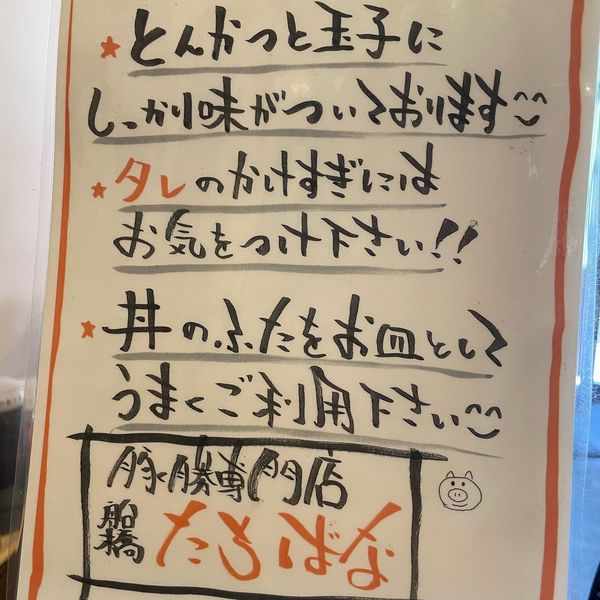 ★とんかつと玉子に
しっかり味がついております^^
★タレのかけすぎには
お気をつけ下さい!!
★丼のふたをお皿として
うまくご利用下さい^^
豚勝専門店
船橋 たちばなや